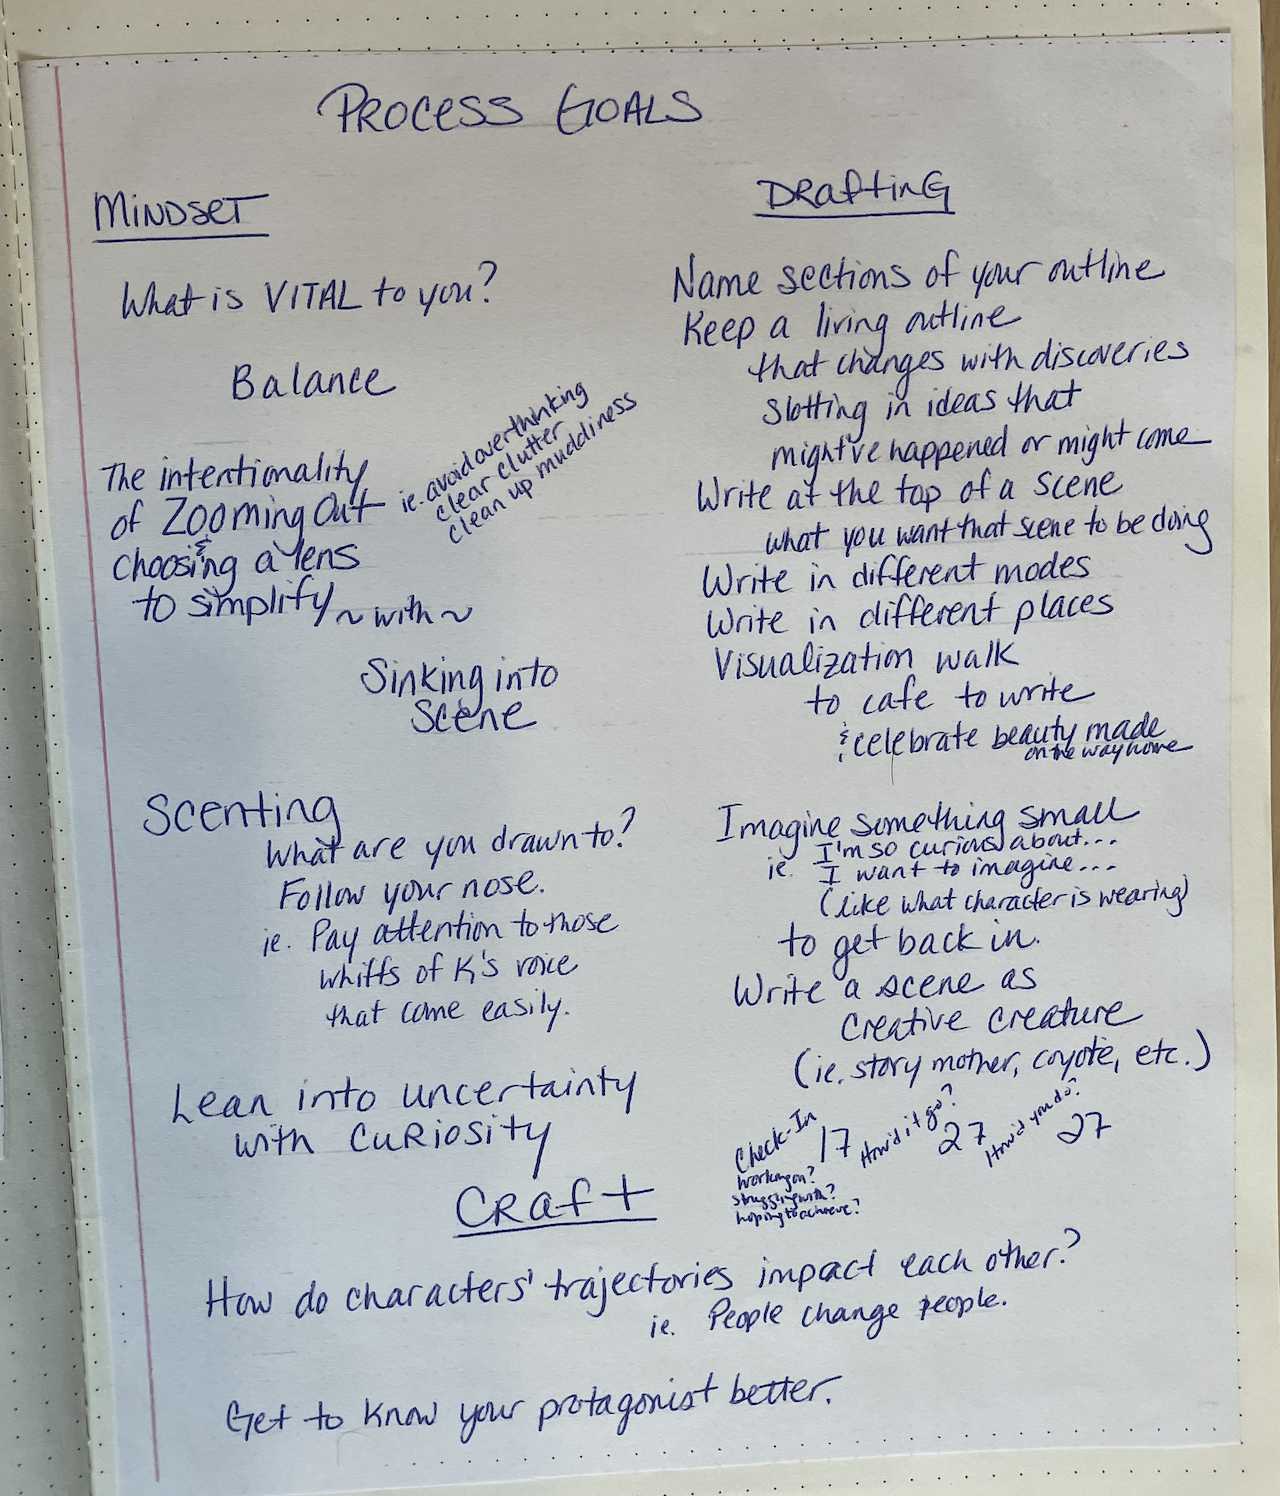 PROCESS GOALS
MINDSET
What is VITAL to you?
Balance
The intentionality
of Zooming Out
&
choosing a lens
to simplify ~ with ~
ie. avoid overthinking
clear clutter
clean up muddiness
Sinking into
Scene
Scenting
What are you drawn to?
Follow your nose.
ie. Pay attention to those
whiffs of K's voice
that come easily.
Lean into uncertainty
with curiosity
Drafting
Name sections of your outline
Keep a living outline
that changes with discoveries
slotting in ideas that
might've happened or might come
Write at the top of a scene
what you want that scene to be doing
Write in different modes
Write in different places
Visualization walk
to cafe to write
& celebrate beauty made
on the way home
Imagine something small
ie. I'm so curious about...
I want to imagine...
(like what character is wearing)
to get back in.
Write a scene as
creative creature
(ie. story mother, coyote, etc.)
Check-In 17 How'd it go? 27 How'd you do? 27
Working on?
struggling with?
hoping to achieve?
Craft
How do characters' trajectories impact each other?
ie. People change people.
Get to know your protagonist better.